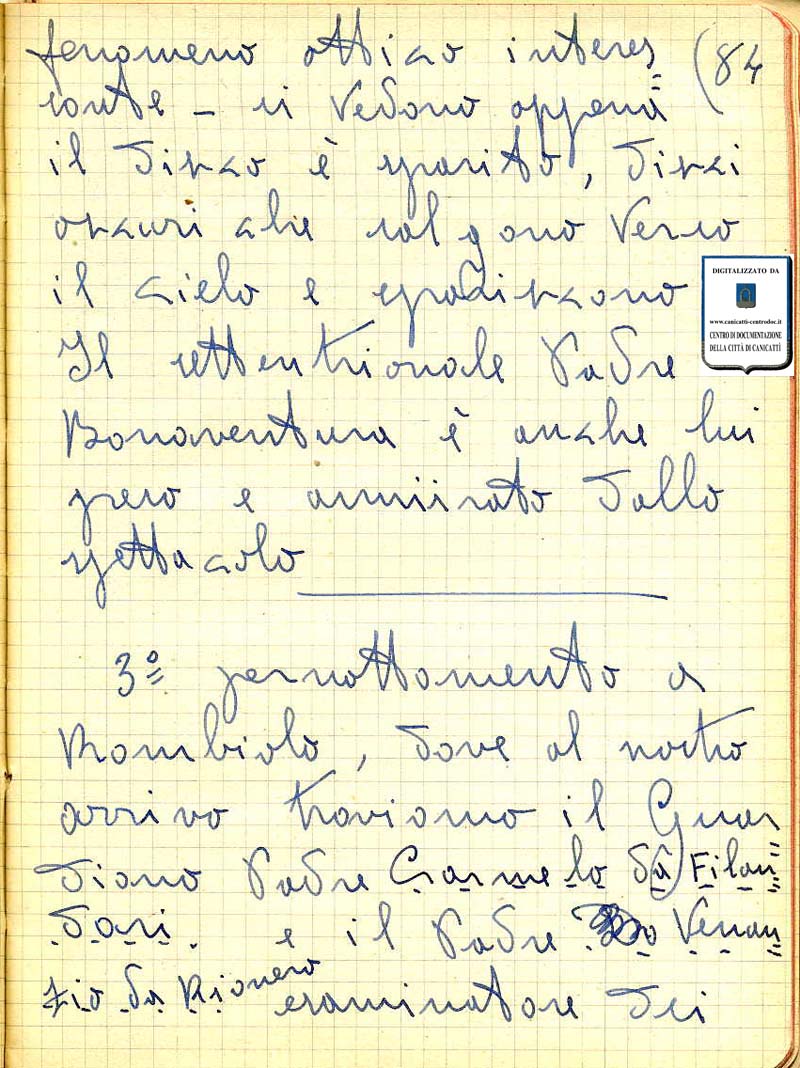 fenomeno ottico interes= (84
sante – si vedono appena
il disco è sparito, dischi
oscuri che salgono verso
il cielo e spariscono
Il settentrionale Padre
Bonaventura è anche lui
preso e ammirato dallo
spettacolo
3º pernottamento a
Rombiolo, dove al nostro
arrivo troviamo il Guar=
diano Padre Carmelo da Filan=
dari. e il Padre Venan=
zio da Rionero esaminatore dei
DIGITALIZZATO DA
www.canicatti-centrodoc.it
CENTRO DI DOCUMENTAZIONE
DELLA CITTÀ DI CANICATTÌ